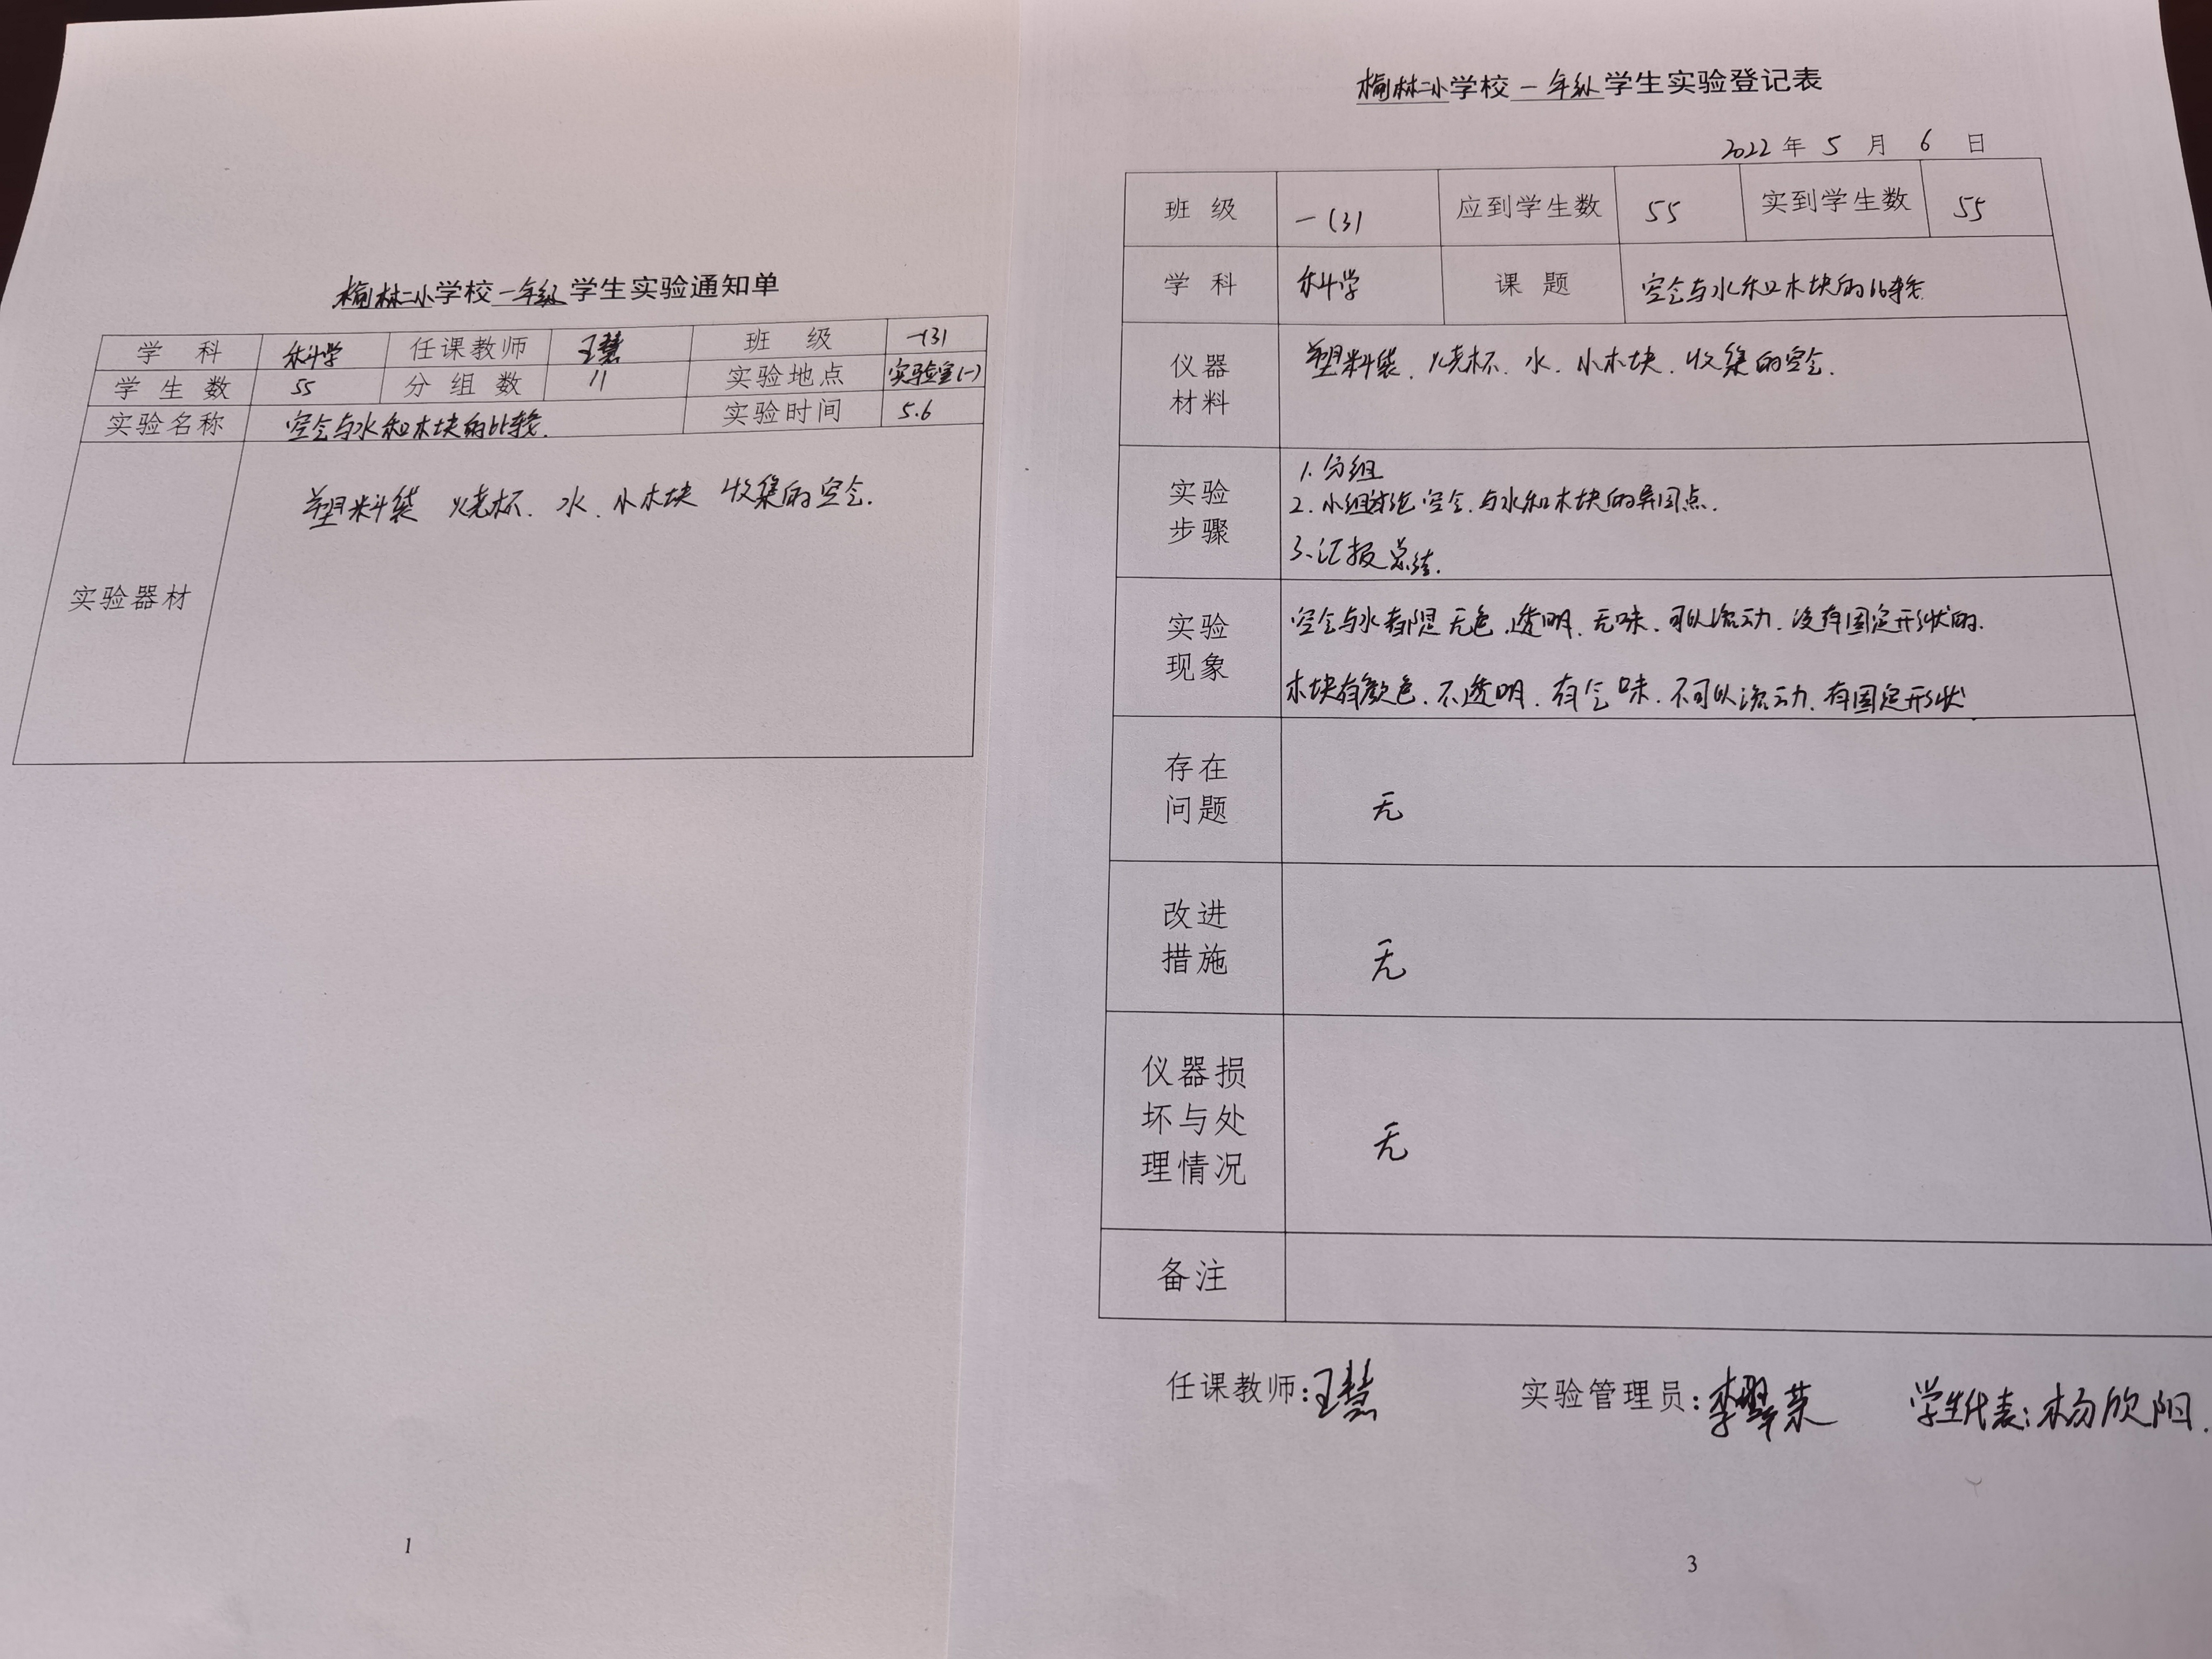 榆林二小学校一年级学生实验通知单
学 科 科学 任课教师 王慧 班 级 一(3)
学 生 数 55 分 组 数 11 实验地点 实验室(一)
实验名称 空气与水和木块的比较. 实验时间 5.6
实验器材 塑料袋 烧杯、水、小木块 收集的空气.
1
榆林二小学校一年级学生实验登记表
2022年 5 月 6 日
班 级 一(3) 应到学生数 55 实到学生数 55
学 科 科学 课 题 空气与水和木块的比较.
仪器
材料
塑料袋、烧杯、水、小木块、收集的空气.
实验
步骤
1. 分组
2. 小组讨论空气、与水和木块的异同点.
3、汇报总结.
实验
现象
空气与水都是无色、透明、无味、可以流动、没有固定形状的.
木块有颜色、不透明、有气味、不可以流动、有固定形状
存在
问题
无
改进
措施
无
仪器损
坏与处
理情况
无
备注
任课教师:王慧 实验管理员:李翠荣 学生代表:杨欣阳.
3